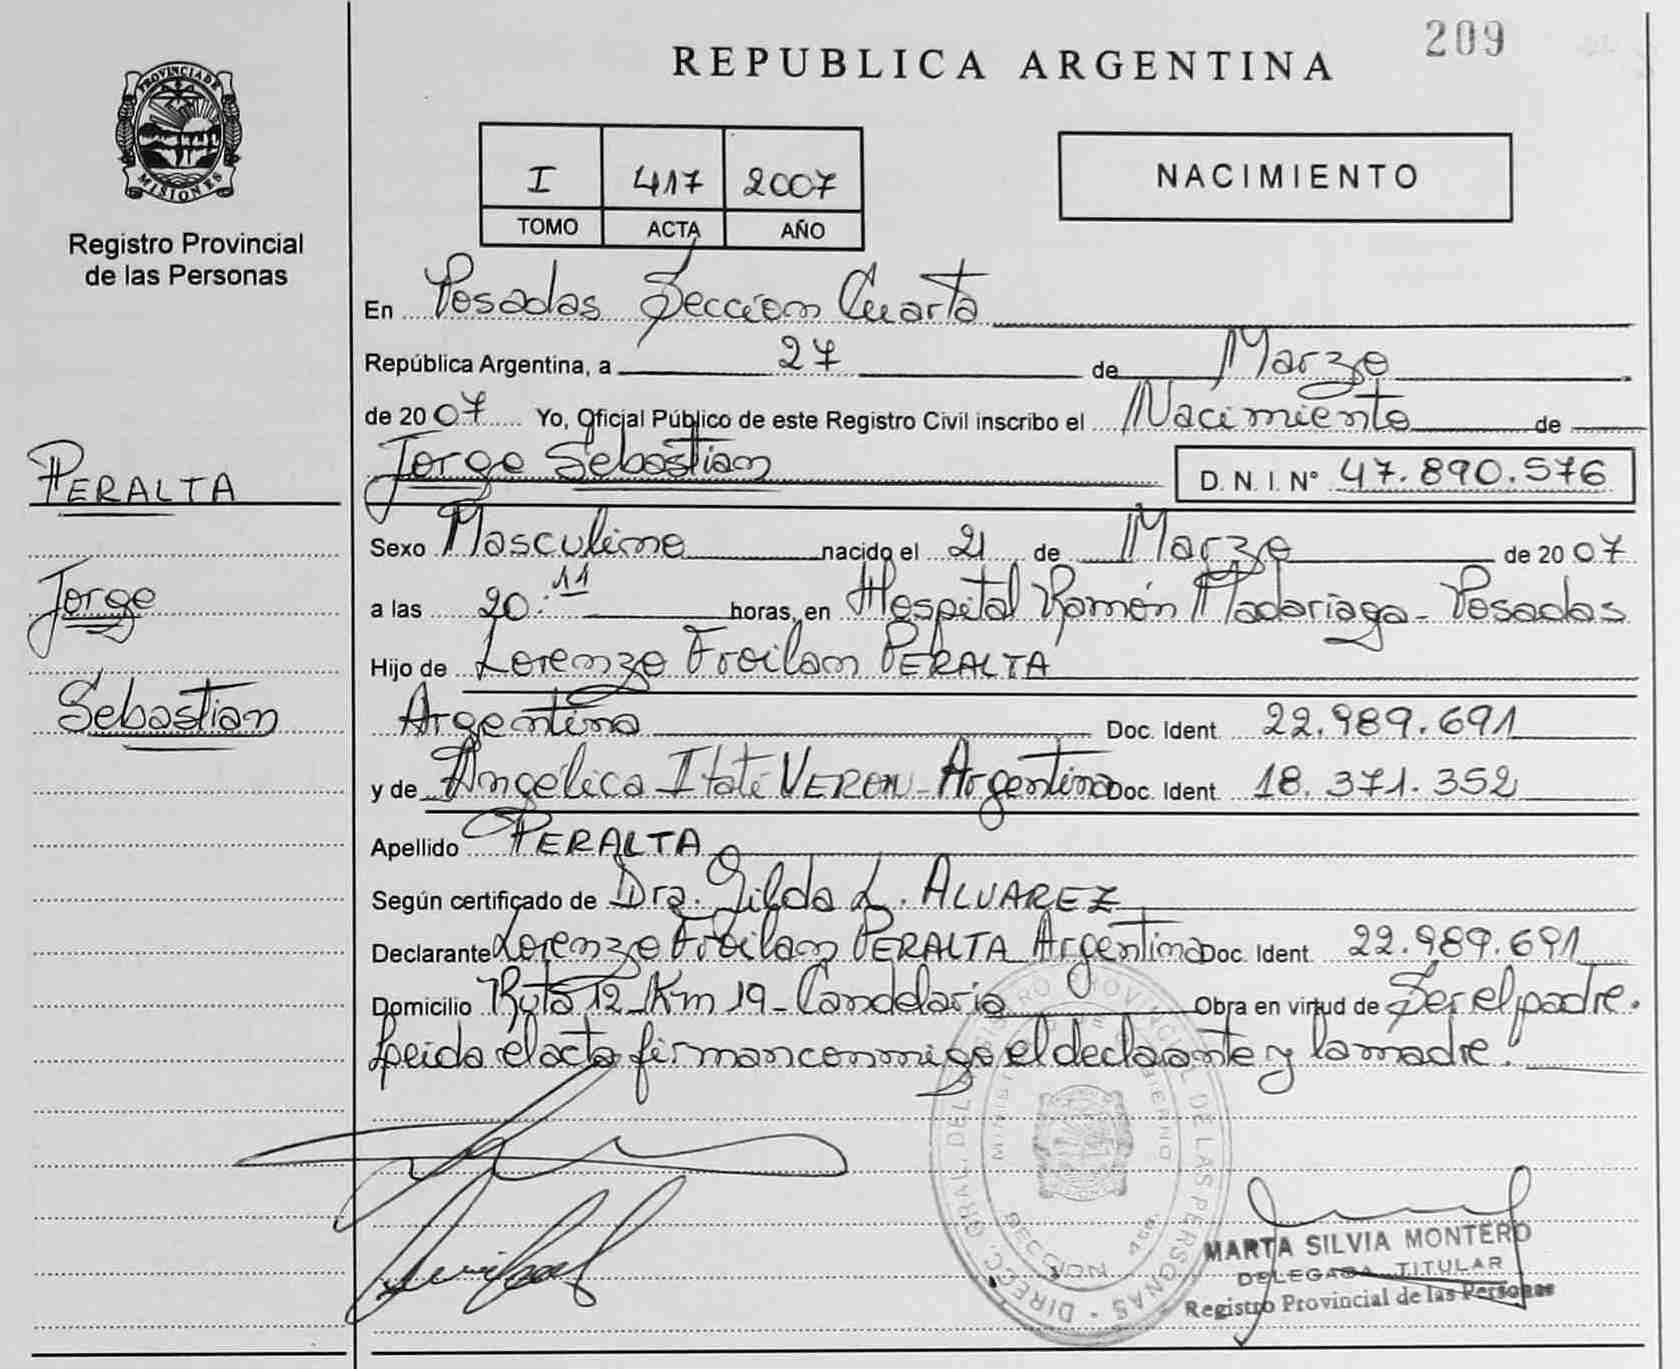 209
REPUBLICA ARGENTINA
PROVINCIA DE
MISIONES
Registro Provincial
de las Personas
I 417 2007
TOMO ACTA AÑO
NACIMIENTO
En Posadas Sección Cuarta
República Argentina, a 27 de Marzo
de 2007 Yo, Oficial Público de este Registro Civil inscribo el Nacimiento de
PERALTA
Jorge
Sebastian
Jorge Sebastian D. N. I. N° 47.890.576
Sexo Masculino nacido el 21 de Marzo de 2007
a las 20:11 horas, en Hospital Ramón Madariaga - Posadas
Hijo de Lorenzo Froilan PERALTA
Argentino Doc. Ident. 22.989.691
y de Angélica Itatí VERON - Argentina Doc. Ident. 18.371.352
Apellido PERALTA
Según certificado de Dra. Gilda L. ALVAREZ
Declarante Lorenzo Froilan PERALTA Argentino Doc. Ident. 22.989.691
Domicilio Ruta 12 - Km 19 - Candelaria Obra en virtud de Ser el padre.
Leida el acta firman conmigo el declarante y la madre.
MARTA SILVIA MONTERO
DELEGADA TITULAR
Registro Provincial de las Personas